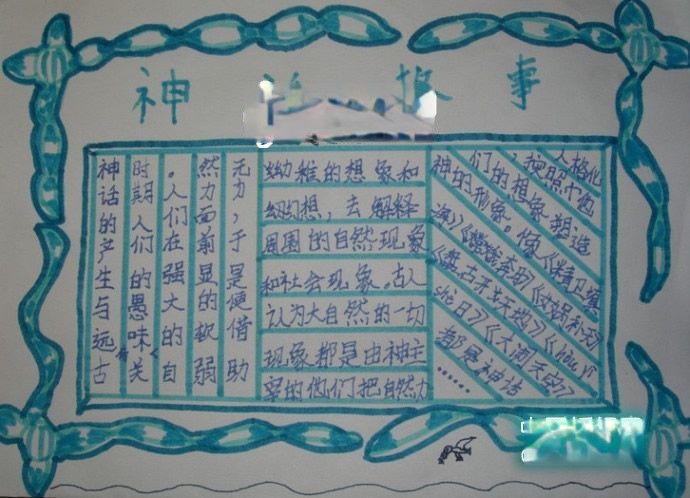 神 故事
神话的产生与远古
时期人们的愚味有关
。人们在强大的自
然力面前显的软弱
无力，于是便借助
幼稚的想象和
幻想，去解释
周围的自然现象
和社会现象。古人
认为大自然的一切
现象都是由神主
宰的他们把自然力
人格化
，按照他
们的想象塑造
神的形象。像《精卫填
海》《嫦娥奔月》《女娲补天》
《盘古开天地》《hòu yì
shè日》《大闹天宫》
都是神话
……